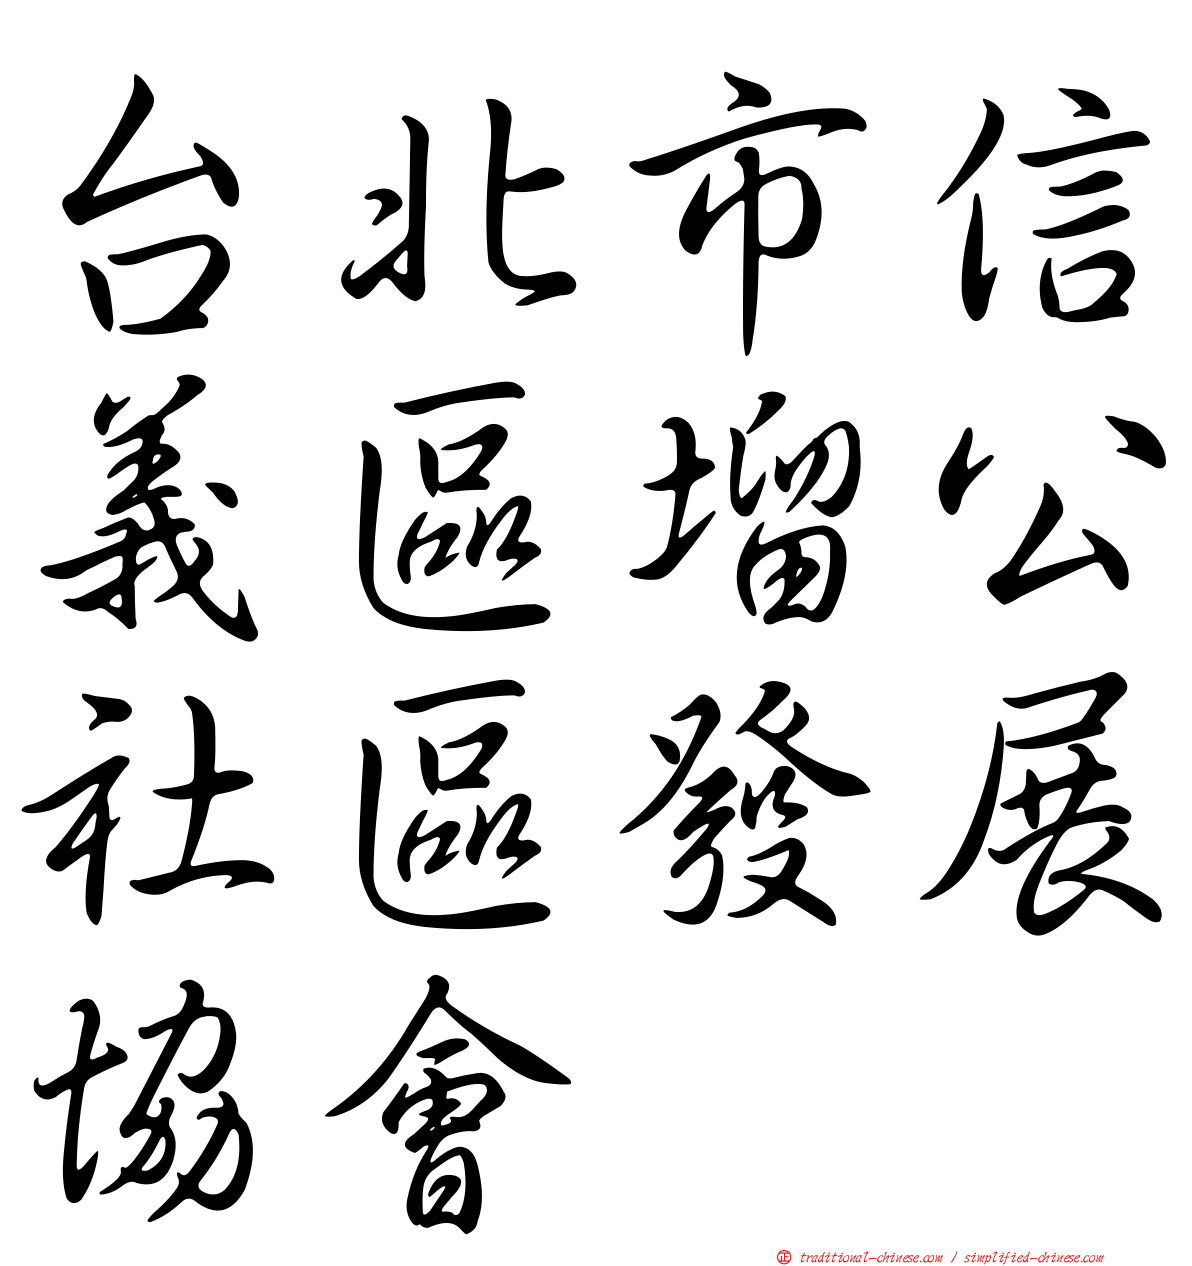 台北市信
義區塯公
社區發展
協會
正 traditional-chinese.com / simplified-chinese.com